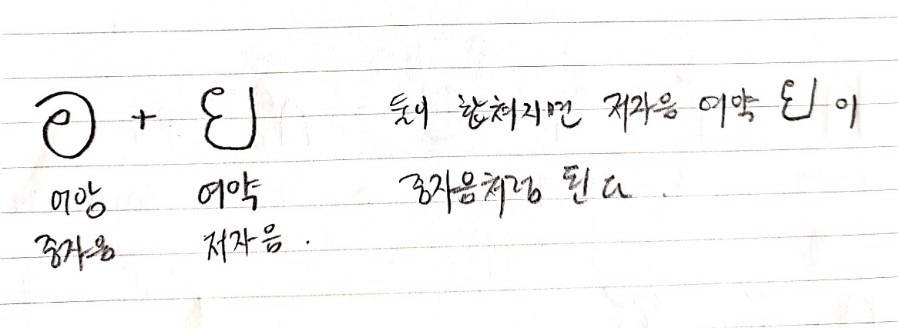 อ + ย 둘이 합쳐지면 저자음 여약 ย 이
어앙 여약 중자음처럼 된다.
중자음 저자음.